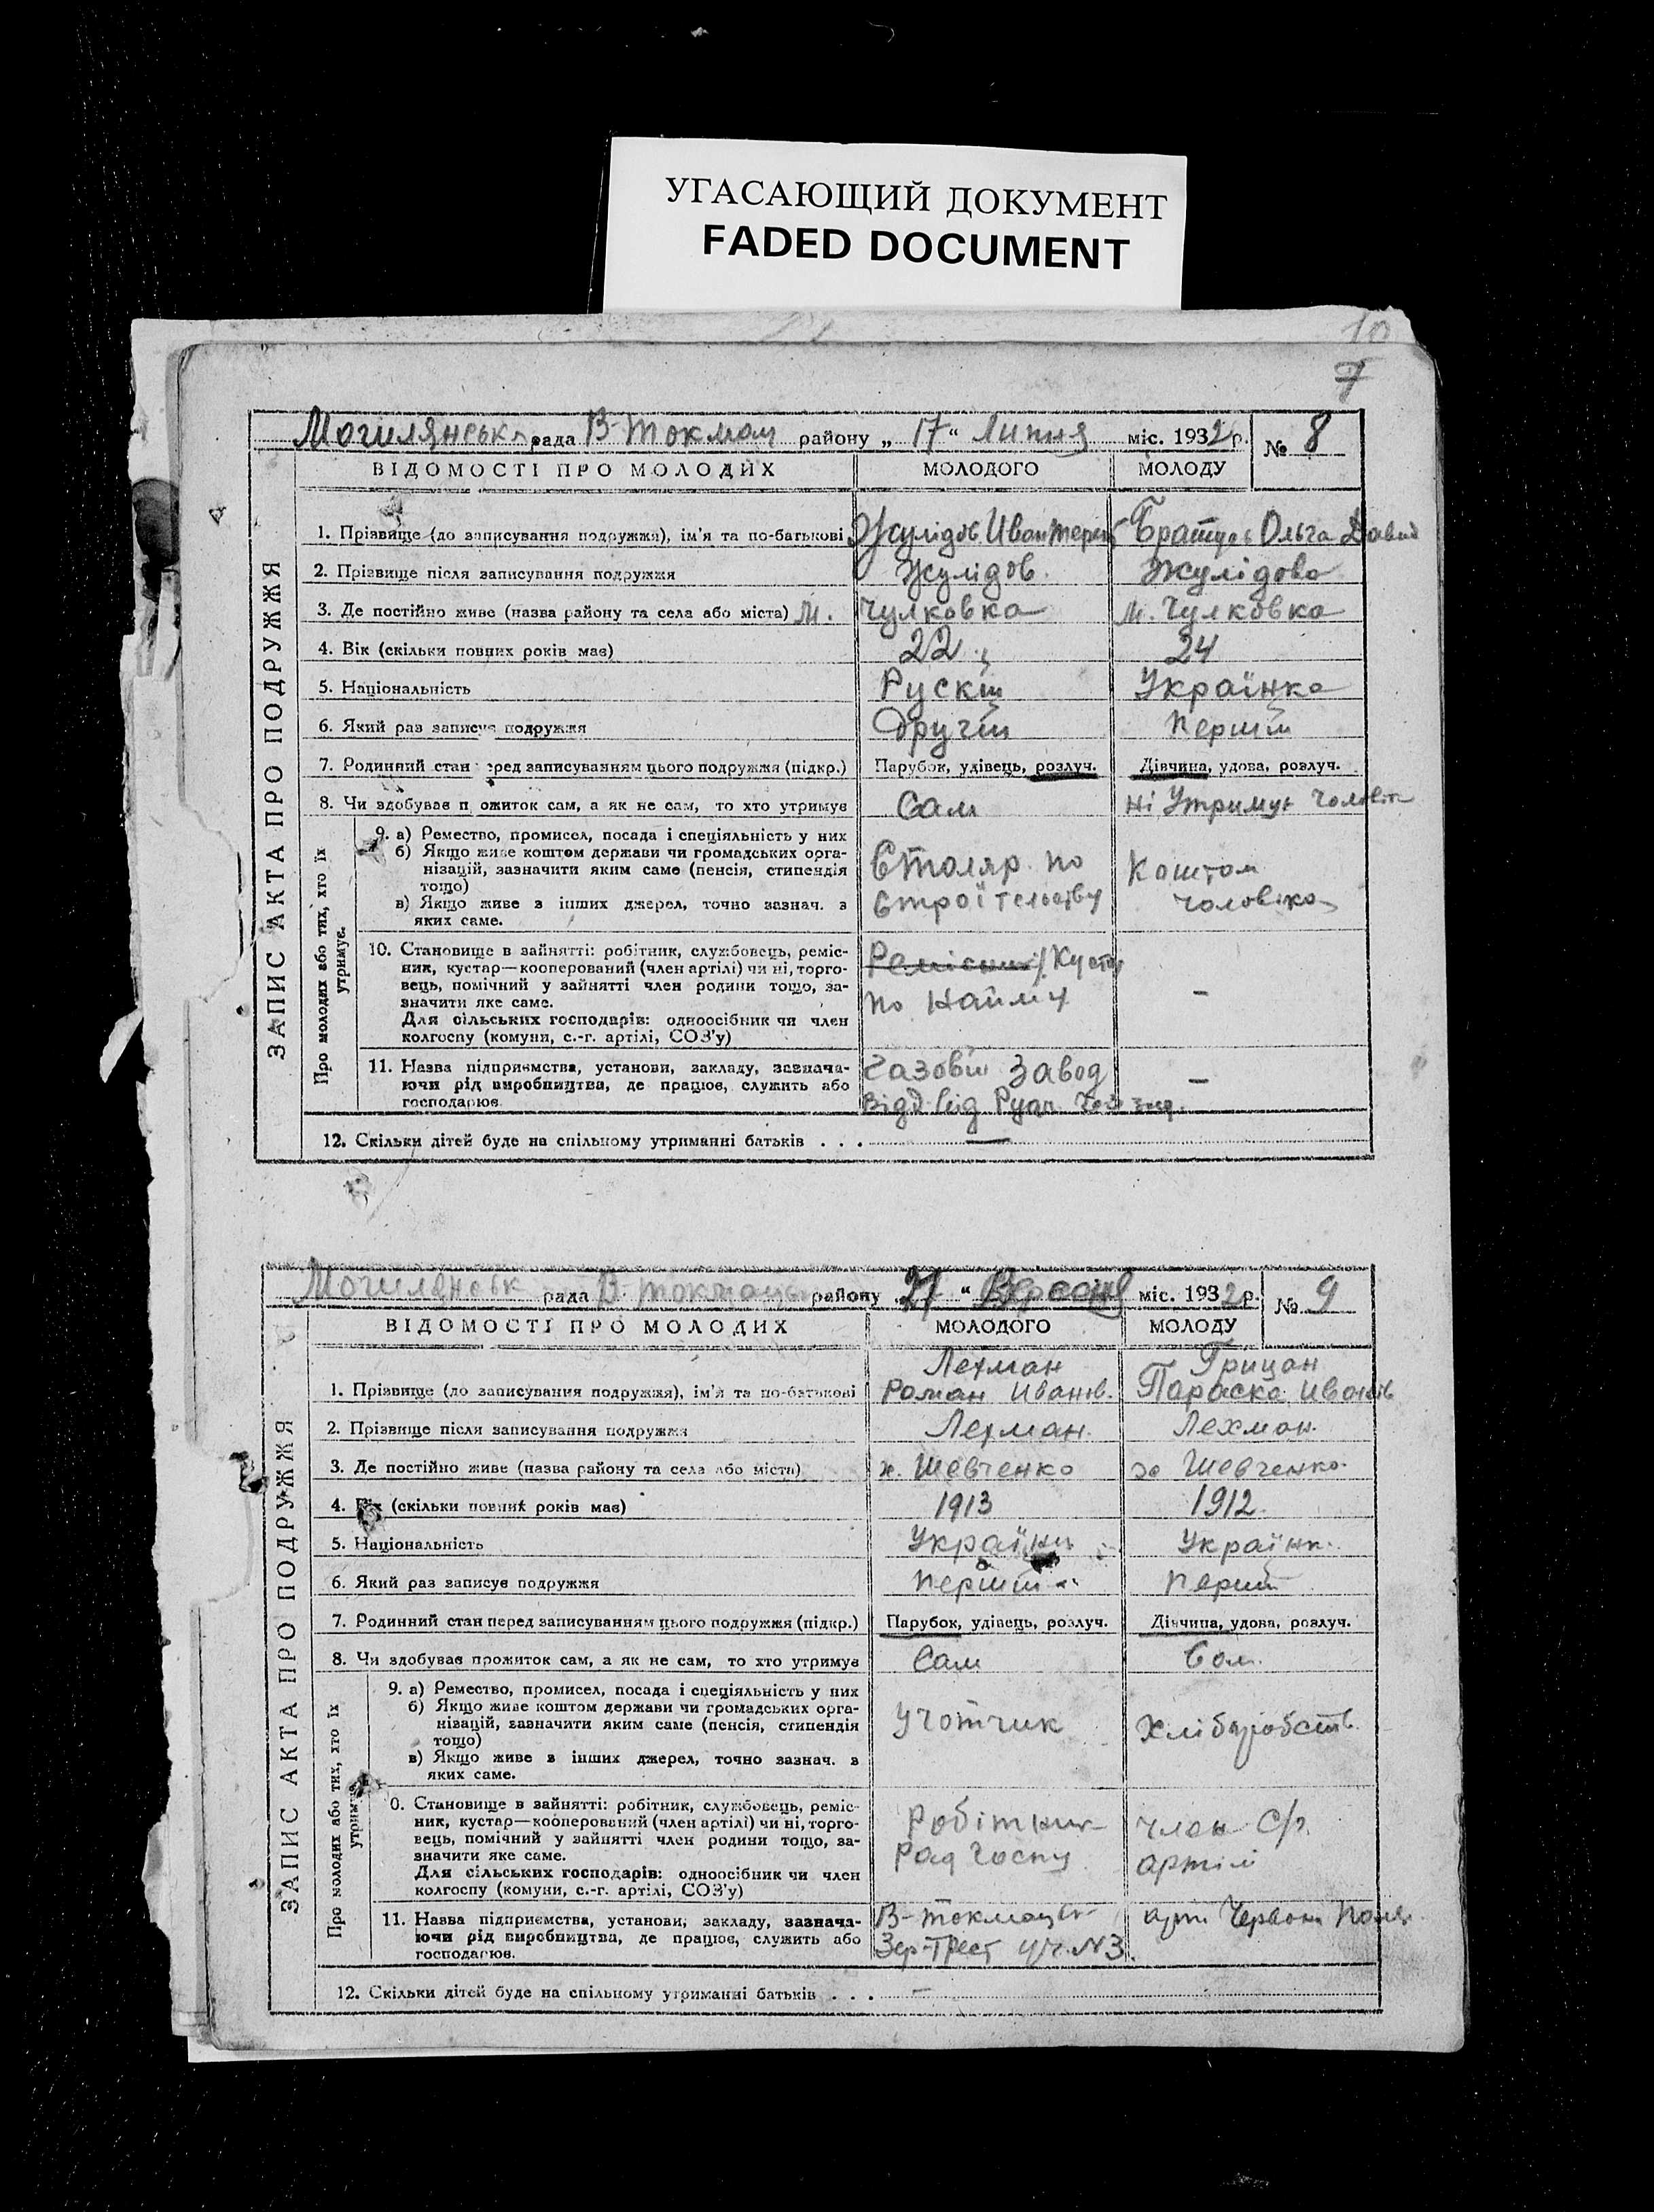 УГАСАЮЩИЙ ДОКУМЕНТ
FADED DOCUMENT
10
7
ЗАПИС АКТА ПРО ПОДРУЖЖЯ
Могилянська рада В-Токмац району „ 17 “ Липня міс. 1932 р. № 8
ВІДОМОСТІ ПРО МОЛОДИХ МОЛОДОГО МОЛОДУ
1. Прізвище (до записування подружжя), ім'я та по-батькові Жулідов Иван Ольга Давид
2. Прізвище після записування подружжя Жулідов Жулідова
3. Де постійно живе (назва району та села або міста) М. Чулковка м. Чулковка
4. Вік (скільки повних років має) 22 24
5. Національність Рускій Українка
6. Який раз записує подружжя другій перший
7. Родинний стан перед записуванням цього подружжя (підкр.) Парубок, удівець, розлуч. Дівчина, удова, розлуч.
8. Чи здобуває прожиток сам, а як не сам, то хто утримує Сам ні Утримує
Про молодих або тих, хто їх утримує.
9. а) Ремество, промисел, посада і спеціяльність у них
б) Якщо живе коштом держави чи громадських орга-
нізацій, зазначити яким саме (пенсія, стипендія Столяр по Коштом
тощо)
в) Якщо живе з інших джерел, точно зазнач. з чоловіка
яких саме.
10. Становище в зайнятті: робітник, службовець, реміс-
ник, кустар—кооперований (член артілі) чи ні, торго- Кустар
вець, помічний у зайнятті член родини тощо, за- –
значити яке саме. по Найму
Для сільських господарів: одноосібник чи член
колгоспу (комуни, с.-г. артілі, СОЗ'у)
11. Назва підприємства, установи, закладу, зазнача- Газовий Завод
ючи рід виробництва, де працює, служить або –
господарює
12. Скільки дітей буде на спільному утриманні батьків . . . —
ЗАПИС АКТА ПРО ПОДРУЖЖЯ
Могилянськ рада В-Токмацьк району „ 27 “ Вересня міс. 1932 р. № 9
ВІДОМОСТІ ПРО МОЛОДИХ МОЛОДОГО МОЛОДУ
Лехман Грицан
1. Прізвище (до записування подружжя), ім'я та по-батькові Роман Иванов. Параска Иванів
2. Прізвище після записування подружжя Лехман. Лехман.
3. Де постійно живе (назва району та села або міста) х. Шевченко х. Шевченко.
4. Вік (скільки повних років має) 1913 1912.
5. Національність Українц Українк.
6. Який раз записує подружжя перший перший
7. Родинний стан перед записуванням цього подружжя (підкр.) Парубок, удівець, розлуч. Дівчина, удова, розлуч.
8. Чи здобуває прожиток сам, а як не сам, то хто утримує Сам Сам.
Про молодих або тих, хто їх утримує
9. а) Ремество, промисел, посада і спеціяльність у них
б) Якщо живе коштом держави чи громадських орга-
нізацій, зазначити яким саме (пенсія, стипендія Учотчик Хліборобств.
тощо)
в) Якщо живе з інших джерел, точно зазнач. з
яких саме.
0. Становище в зайнятті: робітник, службовець, реміс-
ник, кустар—кооперований (член артілі) чи ні, торго- Робітник член С/г.
вець, помічний у зайнятті член родини тощо, за-
значити яке саме. Рад Госпу артілі
Для сільських господарів: одноосібник чи член
колгоспу (комуни, с.-г. артілі, СОЗ'у)
11. Назва підприємства, установи, закладу, зазнача- В-Токмацьк арт Червон
ючи рід виробництва, де працює, служить або Зер-Трест уч. N3.
господарює.
12. Скільки дітей буде на спільному утриманні батьків . . . –